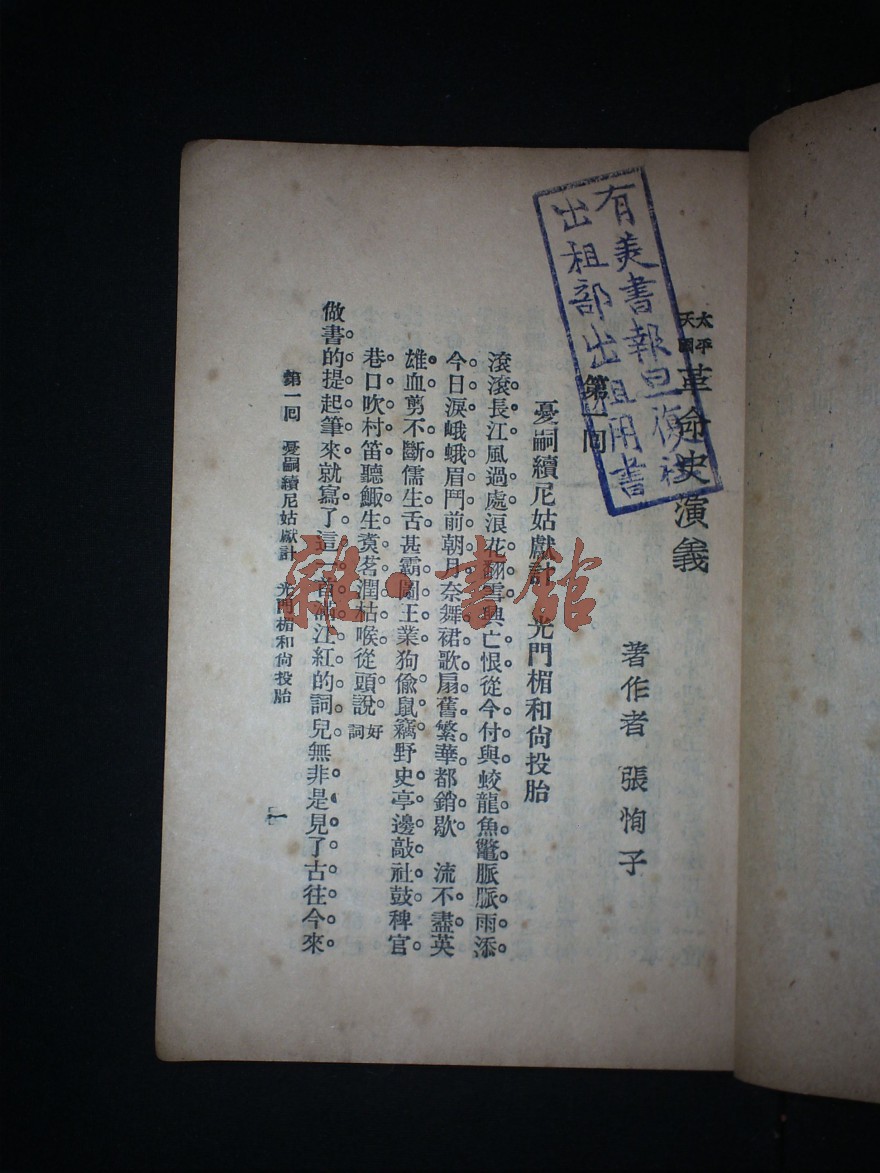 太平
天國
革命史演義
有美書報
出租部出租用書
著作者 張恂子
第一回
憂嗣續尼姑獻計 光門楣和尙投胎
滾滾長江。風過處浪花翻雪。興亡恨從今付與。蛟龍魚鼈。脈脈雨添。
今日淚。峨峨眉鬥前朝月。奈舞裙歌扇舊繁華。都銷歇。 流不盡。英
雄血。剪不斷。儒生舌。甚霸圖王業。狗偸鼠竊。野史亭邊敲社鼓。稗官
巷口吹村笛。聽鯫生煑茗潤枯喉。從頭說。好詞
做書的提起筆來。就寫了這一首滿江紅的詞兒。無非是見了古往今來。
第一回 憂嗣續尼姑獻計 光門楣和尙投胎
一
雜·書館